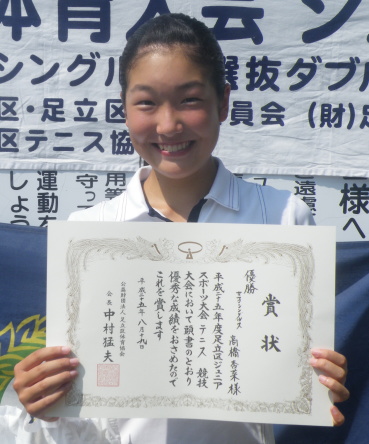 体育大会 シ
シングル
選抜ダブル
区・足立区
員会 (財)足
区テニス協
運動を
しよう
守っ
用
管
遠慮
様へ
賞状
優勝
高橋香菜様
平成二十五年度足立区ジュニア
スポーツ大会 テニス 競技
大会において頭書のとおり
優秀な成績をおさめたので
これを賞します
平成二十五年八月十九日
公益財団法人足立区体育協会
会長 中村猛夫